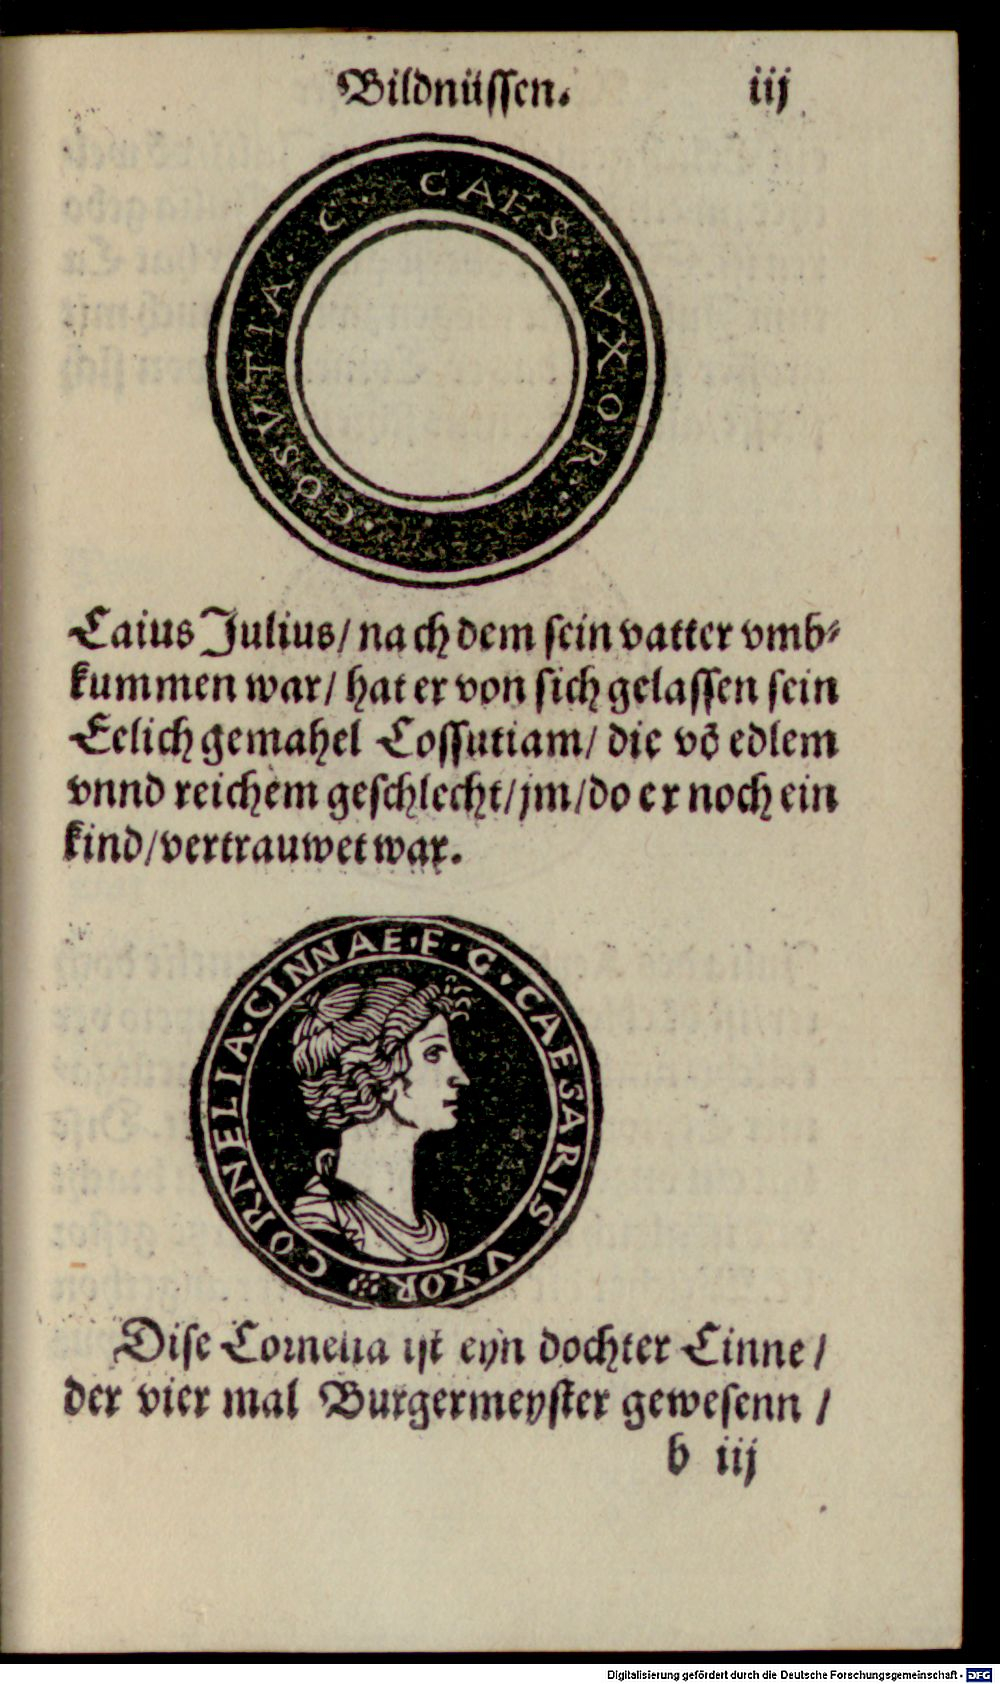 Bildnüssen. iij
COSVTIA · C · CAES · VXOR ·
Caius Julius/ nach dem sein vatter vmb⸗
kummen war/ hat er von sich gelassen sein
Eelich gemahel Cossutiam/ die võ edlem
vnnd reichem geschlecht/ jm/ do er noch ein
kind/ vertrauwet war.
CORNELIA · CINNAE · F · G · CAESARIS VXOR
Dise Cornelia ist eyn dochter Cinne /
der vier mal Burgermeyster gewesenn /
b iij
Digitalisierung gefördert durch die Deutsche Forschungsgemeinschaft - DFG